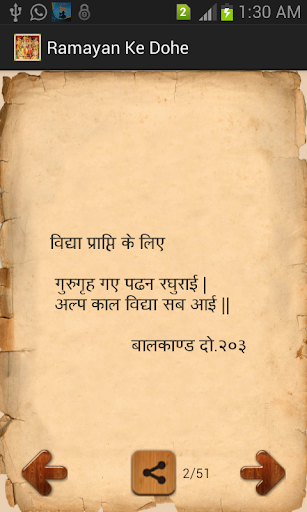 2 1:30 AM
Ramayan Ke Dohe
विद्या प्राप्ति के लिए
गुरुगृह गए पढन रघुराई |
अल्प काल विद्या सब आई ||
बालकाण्ड दो.२०३
2/51